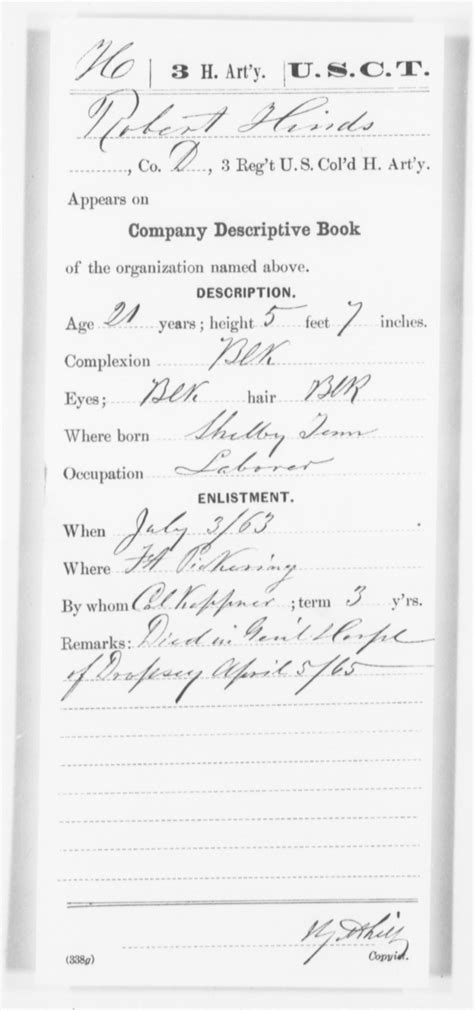 H | 3 H. Art'y. | U.S.C.T.
Robert Hinds
, Co. D, 3 Reg't U.S. Col'd H. Art'y.
Appears on
Company Descriptive Book
of the organization named above.
DESCRIPTION.
Age 21 years; height 5 feet 7 inches.
Complexion Blk
Eyes; Blk hair Blk
Where born Shelby Tenn
Occupation Laborer
ENLISTMENT.
When July 3/63
Where Ft Pickering
By whom Col Keppner; term 3 y'rs.
Remarks: Died in Gen'l Hospl
of Dropsey April 5/65
(338g) Copyist.